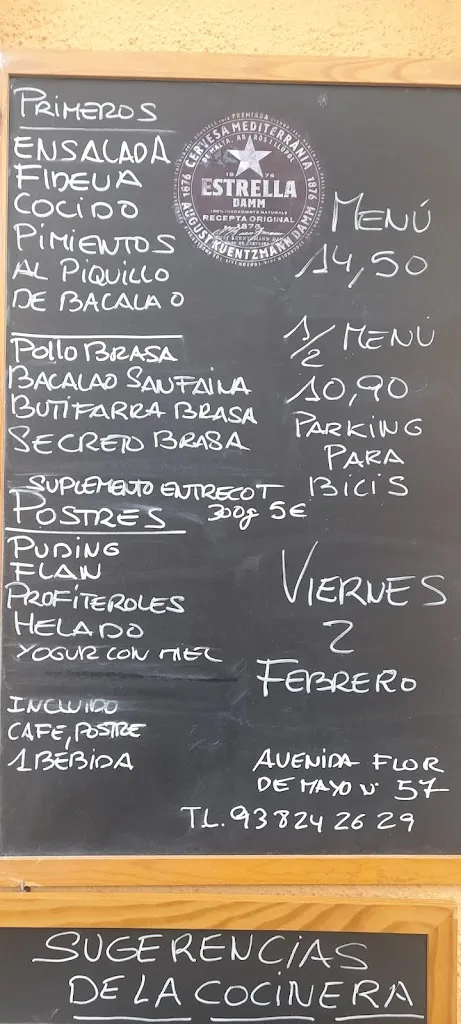 PRIMEROS
ENSALADA
FIDEUA
COCIDO
PIMIENTOS
AL PIQUILLO
DE BACALAO
POLLO BRASA
BACALAO SANFAINA
BUTIFARRA BRASA
SECRETO BRASA
SUPLEMENTO ENTRECOT
300g 5€
POSTRES
PUDING
FLAN
PROFITEROLES
HELADO
YOGUR CON MIEL
INCLUIDO
CAFE, POSTRE
1 BEBIDA
CERVESA MEDITERRÀNIA
1876
1876
ESTRELLA
DAMM
RECEPTA ORIGINAL
1876
AUGUST KUENTZMANN DAMM
MENÚ
14,50
1/2 MENÚ
10,90
PARKING
PARA
BICIS
VIERNES
2
FEBRERO
AVENIDA FLOR
DE MAYO Nº 57
TL. 93 824 26 29
SUGERENCIAS
DE LA COCINERA